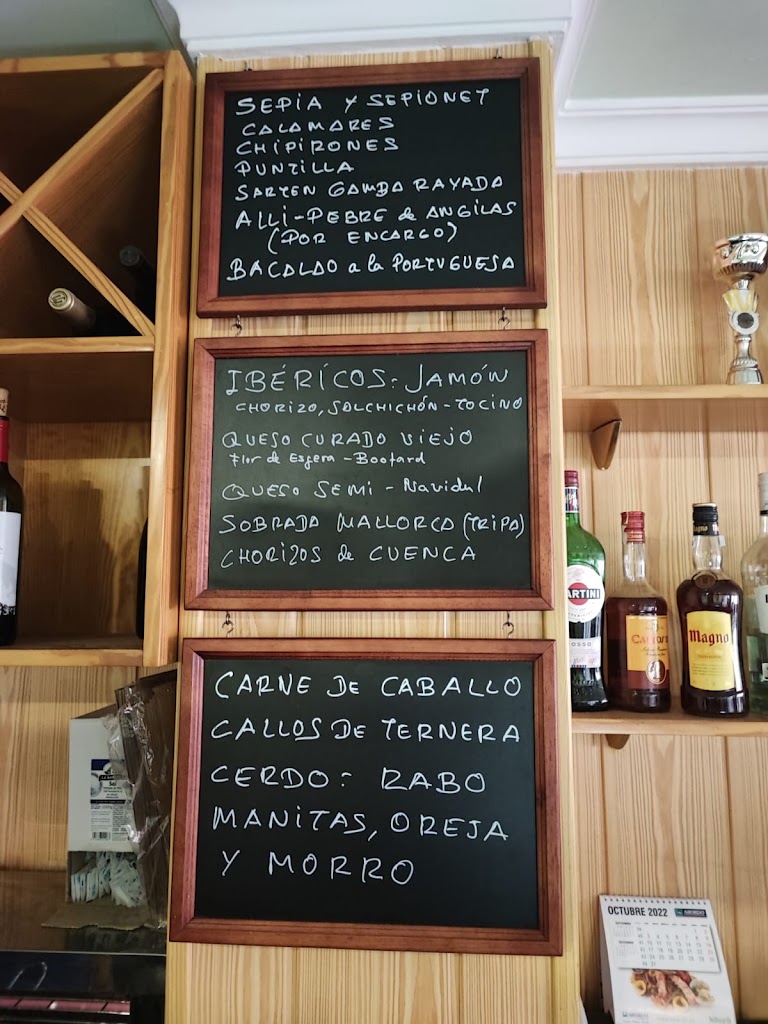 SEPIA Y SEPIONET
CALAMARES
CHIPIRONES
PUNTILLA
SARTEN GAMBA RAYADA
ALLI-PEBRE de ANGILAS
(POR ENCARGO)
BACALAO a la PORTUGUESA
IBÉRICOS: JAMÓN
CHORIZO, SALCHICHÓN - TOCINO
QUESO CURADO VIEJO
Flor de Esgera - Boofard
QUESO SEMI - Navidul
SOBRADA MALLORCA (TRIPA)
CHORIZOS de CUENCA
CARNE DE CABALLO
CALLOS DE TERNERA
CERDO: RABO
MANITAS, OREJA
Y MORRO
ARTINI
Magno
Magno
OCTUBRE 2022